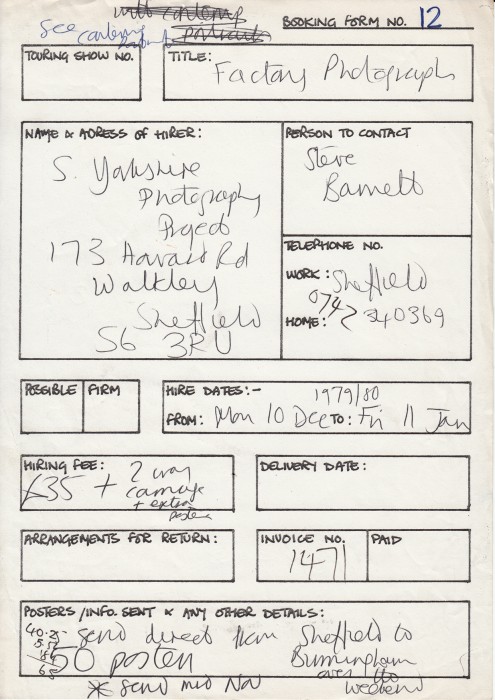 see contemp
portraits
BOOKING FORM NO. 12
TOURING SHOW NO.
TITLE:
Factory Photographs
NAME & ADRESS OF HIRER:
S. Yorkshire
Photography
Project
173 Howard Rd
Walkley
Sheffield
S6 3RU
PERSON TO CONTACT
Steve
Barnett
TELEPHONE NO.
WORK: Sheffield
0742
HOME: 340369
POSSIBLE FIRM
HIRE DATES:- 1979/80
FROM: Mon 10 Dec TO: Fri 11 Jan
HIRING FEE:
£35 + 2 way
carriage
+ extra
posters
DELIVERY DATE:
ARRANGEMENTS FOR RETURN:
INVOICE NO.
1471
PAID
POSTERS/INFO. SENT & ANY OTHER DETAILS:
40.25
send direct from Sheffield to
Birmingham
over the
weekend
50 posters
* send mid Nov